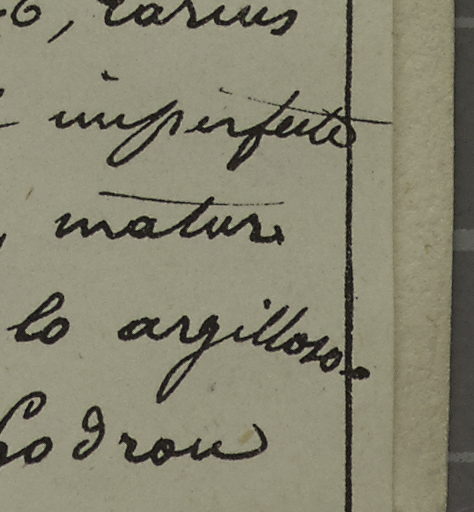 6, rarius
imperfecte
, mature
lo argilloso-